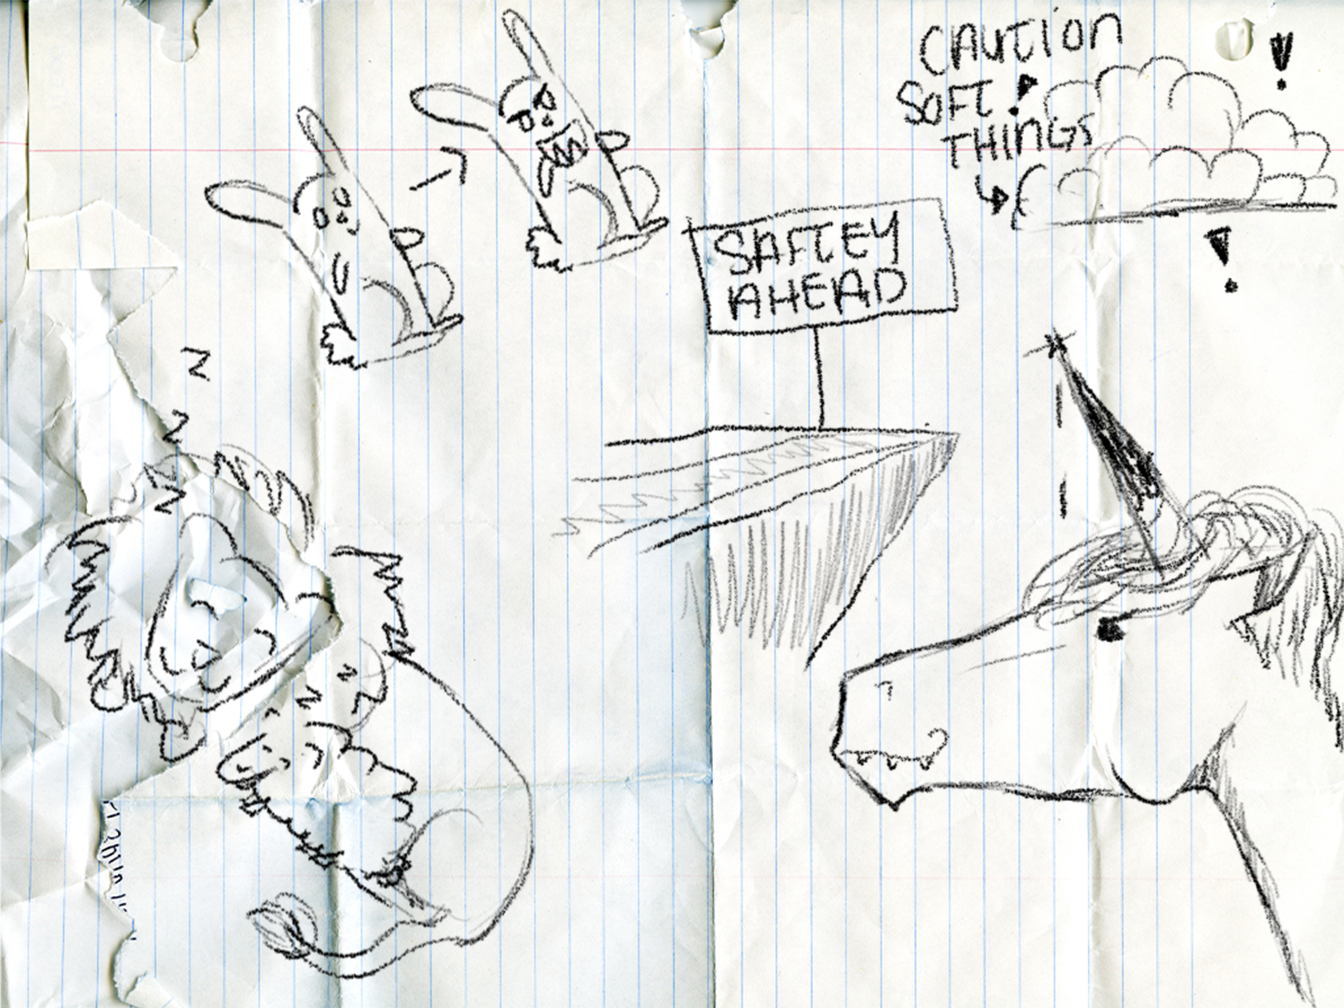 CAUTION
SOFT !
THINGS
!
!
SAFTEY
AHEAD
Z
Z
Z
Z
Z